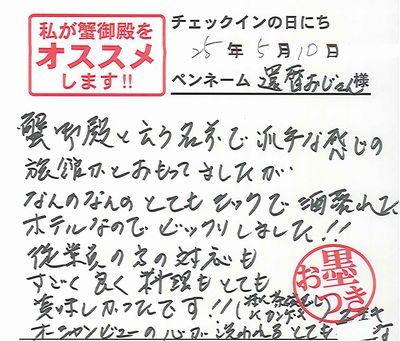 私が蟹御殿を
オススメ
します!!
チェックインの日にち
25年5月10日
ペンネーム 還暦おじさん様
蟹御殿と云う名前で派手な感じの
旅館かとおもってましたが
なんのなんのとてもシックで洒落れた
ホテルなのでビックリしました!!
従業員の方の対応も
すごく良く料理もとても
美味しかったです!!(
オーシャンビューの心が洗われるとても
お墨つき